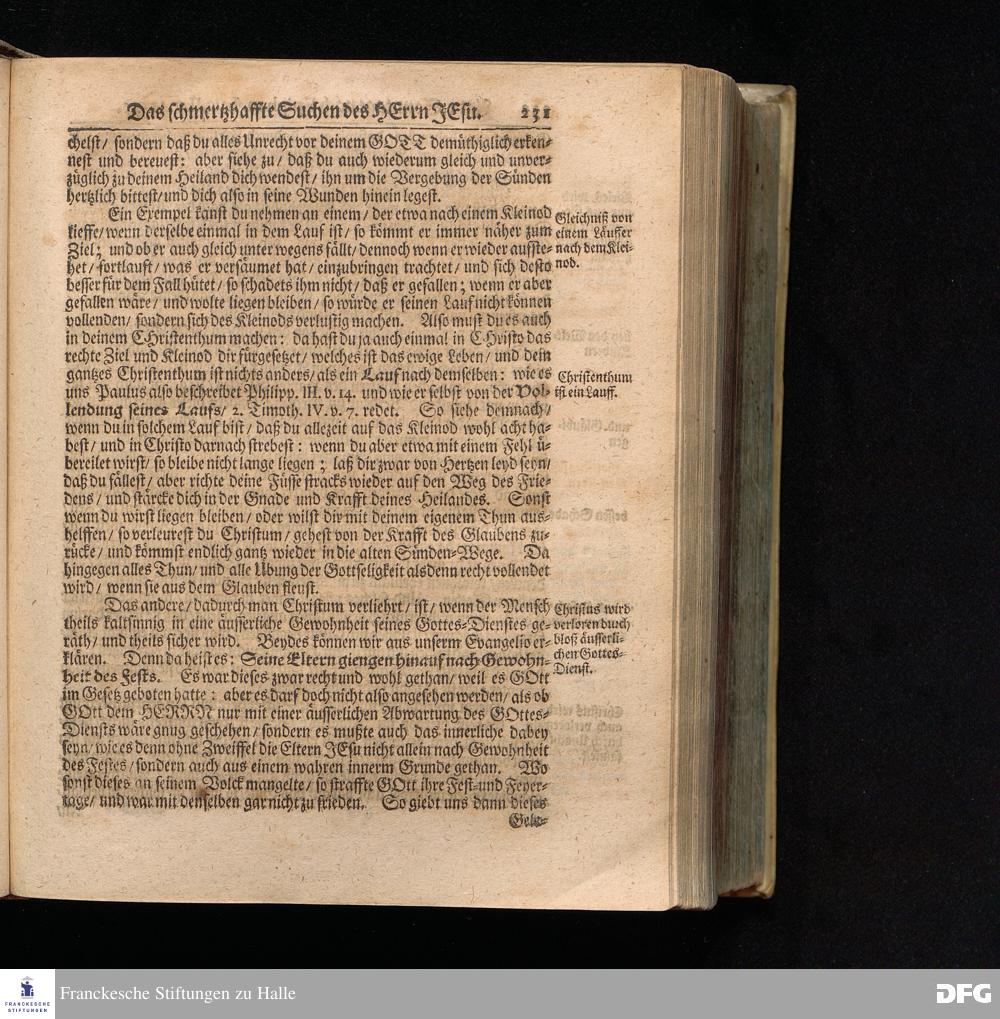 Das schmertzhaffte Suchen des HErrn JEsu. 231
chelst/ sondern daß du alles Unrecht vor deinem GOTT demüthiglich erken-
nest und bereuest: aber siehe zu/ daß du auch wiederum gleich und unver-
züglich zu deinem Heiland dich wendest/ ihn um die Vergebung der Sünden
hertzlich bittest/ und dich also in seine Wunden hinein legest.
Ein Exempel kanst du nehmen an einem/ der etwa nach einem Kleinod
lieffe/ wenn derselbe einmal in dem Lauf ist/ so kömmt er immer näher zum
Ziel; und ob er auch gleich unter wegens fällt/ dennoch wenn er wieder aufste-
het/ fortlaufft/ was er versäumet hat/ einzubringen trachtet/ und sich desto
besser für dem Fall hütet/ so schadets ihm nicht/ daß er gefallen; wenn er aber
gefallen wäre/ und wolte liegen bleiben/ so würde er seinen Lauf nicht können
vollenden/ sondern sich des Kleinods verlustig machen. Also must du es auch
in deinem CHristenthum machen: da hast du ja auch einmal in CHristo das
rechte Ziel und Kleinod dir fürgesetzet/ welches ist das ewige Leben/ und dein
gantzes Christenthum ist nichts anders/ als ein Lauf nach demselben: wie es
uns Paulus also beschreibet Philipp. III. v. 14. und wie er selbst von der Vol-
lendung seines Laufs/ 2. Timoth. IV. v. 7. redet. So siehe demnach/
wenn du in solchem Lauf bist/ daß du allezeit auf das Kleinod wohl acht ha-
best/ und in Christo darnach strebest: wenn du aber etwa mit einem Fehl ü-
bereilet wirst/ so bleibe nicht lange liegen; laß dir zwar von Hertzen leyd seyn/
daß du fällest/ aber richte deine Füsse stracks wieder auf den Weg des Frie-
dens/ und stärcke dich in der Gnade und Krafft deines Heilandes. Sonst
wenn du wirst liegen bleiben/ oder wilst dir mit deinem eigenem Thun aus-
helffen/ so verleurest du Christum/ gehest von der Krafft des Glaubens zu-
rücke/ und kömmst endlich gantz wieder in die alten Sünden-Wege. Da
hingegen alles Thun/ und alle Übung der Gottseligkeit alsdenn recht vollendet
wird/ wenn sie aus dem Glauben fleust.
Das andere/ dadurch man Christum verliehrt/ ist/ wenn der Mensch
theils kaltsinnig in eine äusserliche Gewohnheit seines Gottes-Dienstes ge-
räth/ und theils sicher wird. Beydes können wir aus unserm Evangelio er-
klären. Denn da heist es: Seine Eltern giengen hinauf nach Gewohn-
heit des Fests. Es war dieses zwar recht und wohl gethan/ weil es GOtt
im Gesetz geboten hatte: aber es darf doch nicht also angesehen werden/ als ob
GOtt dem HERRN nur mit einer äusserlichen Abwartung des GOttes-
Diensts wäre gnug geschehen/ sondern es mußte auch das innerliche dabey
seyn/ wie es denn ohne Zweiffel die Eltern JEsu nicht allein nach Gewohnheit
des Festes/ sondern auch aus einem wahren innerm Grunde gethan. Wo
sonst dieses an seinem Volck mangelte/ so straffte GOtt ihre Fest- und Feyer-
tage/ und war mit denselben gar nicht zu frieden. So giebt uns dann dieses
Gele-
Gleichniß von
einem Läuffer
nach dem Klei-
nod.
Christenthum
ist ein Lauff.
Christus wird
verloren durch
bloß äusserli-
chen Gottes-
Dienst.
FRANCKESCHE
STIFTUNGEN
Franckesche Stiftungen zu Halle
DFG